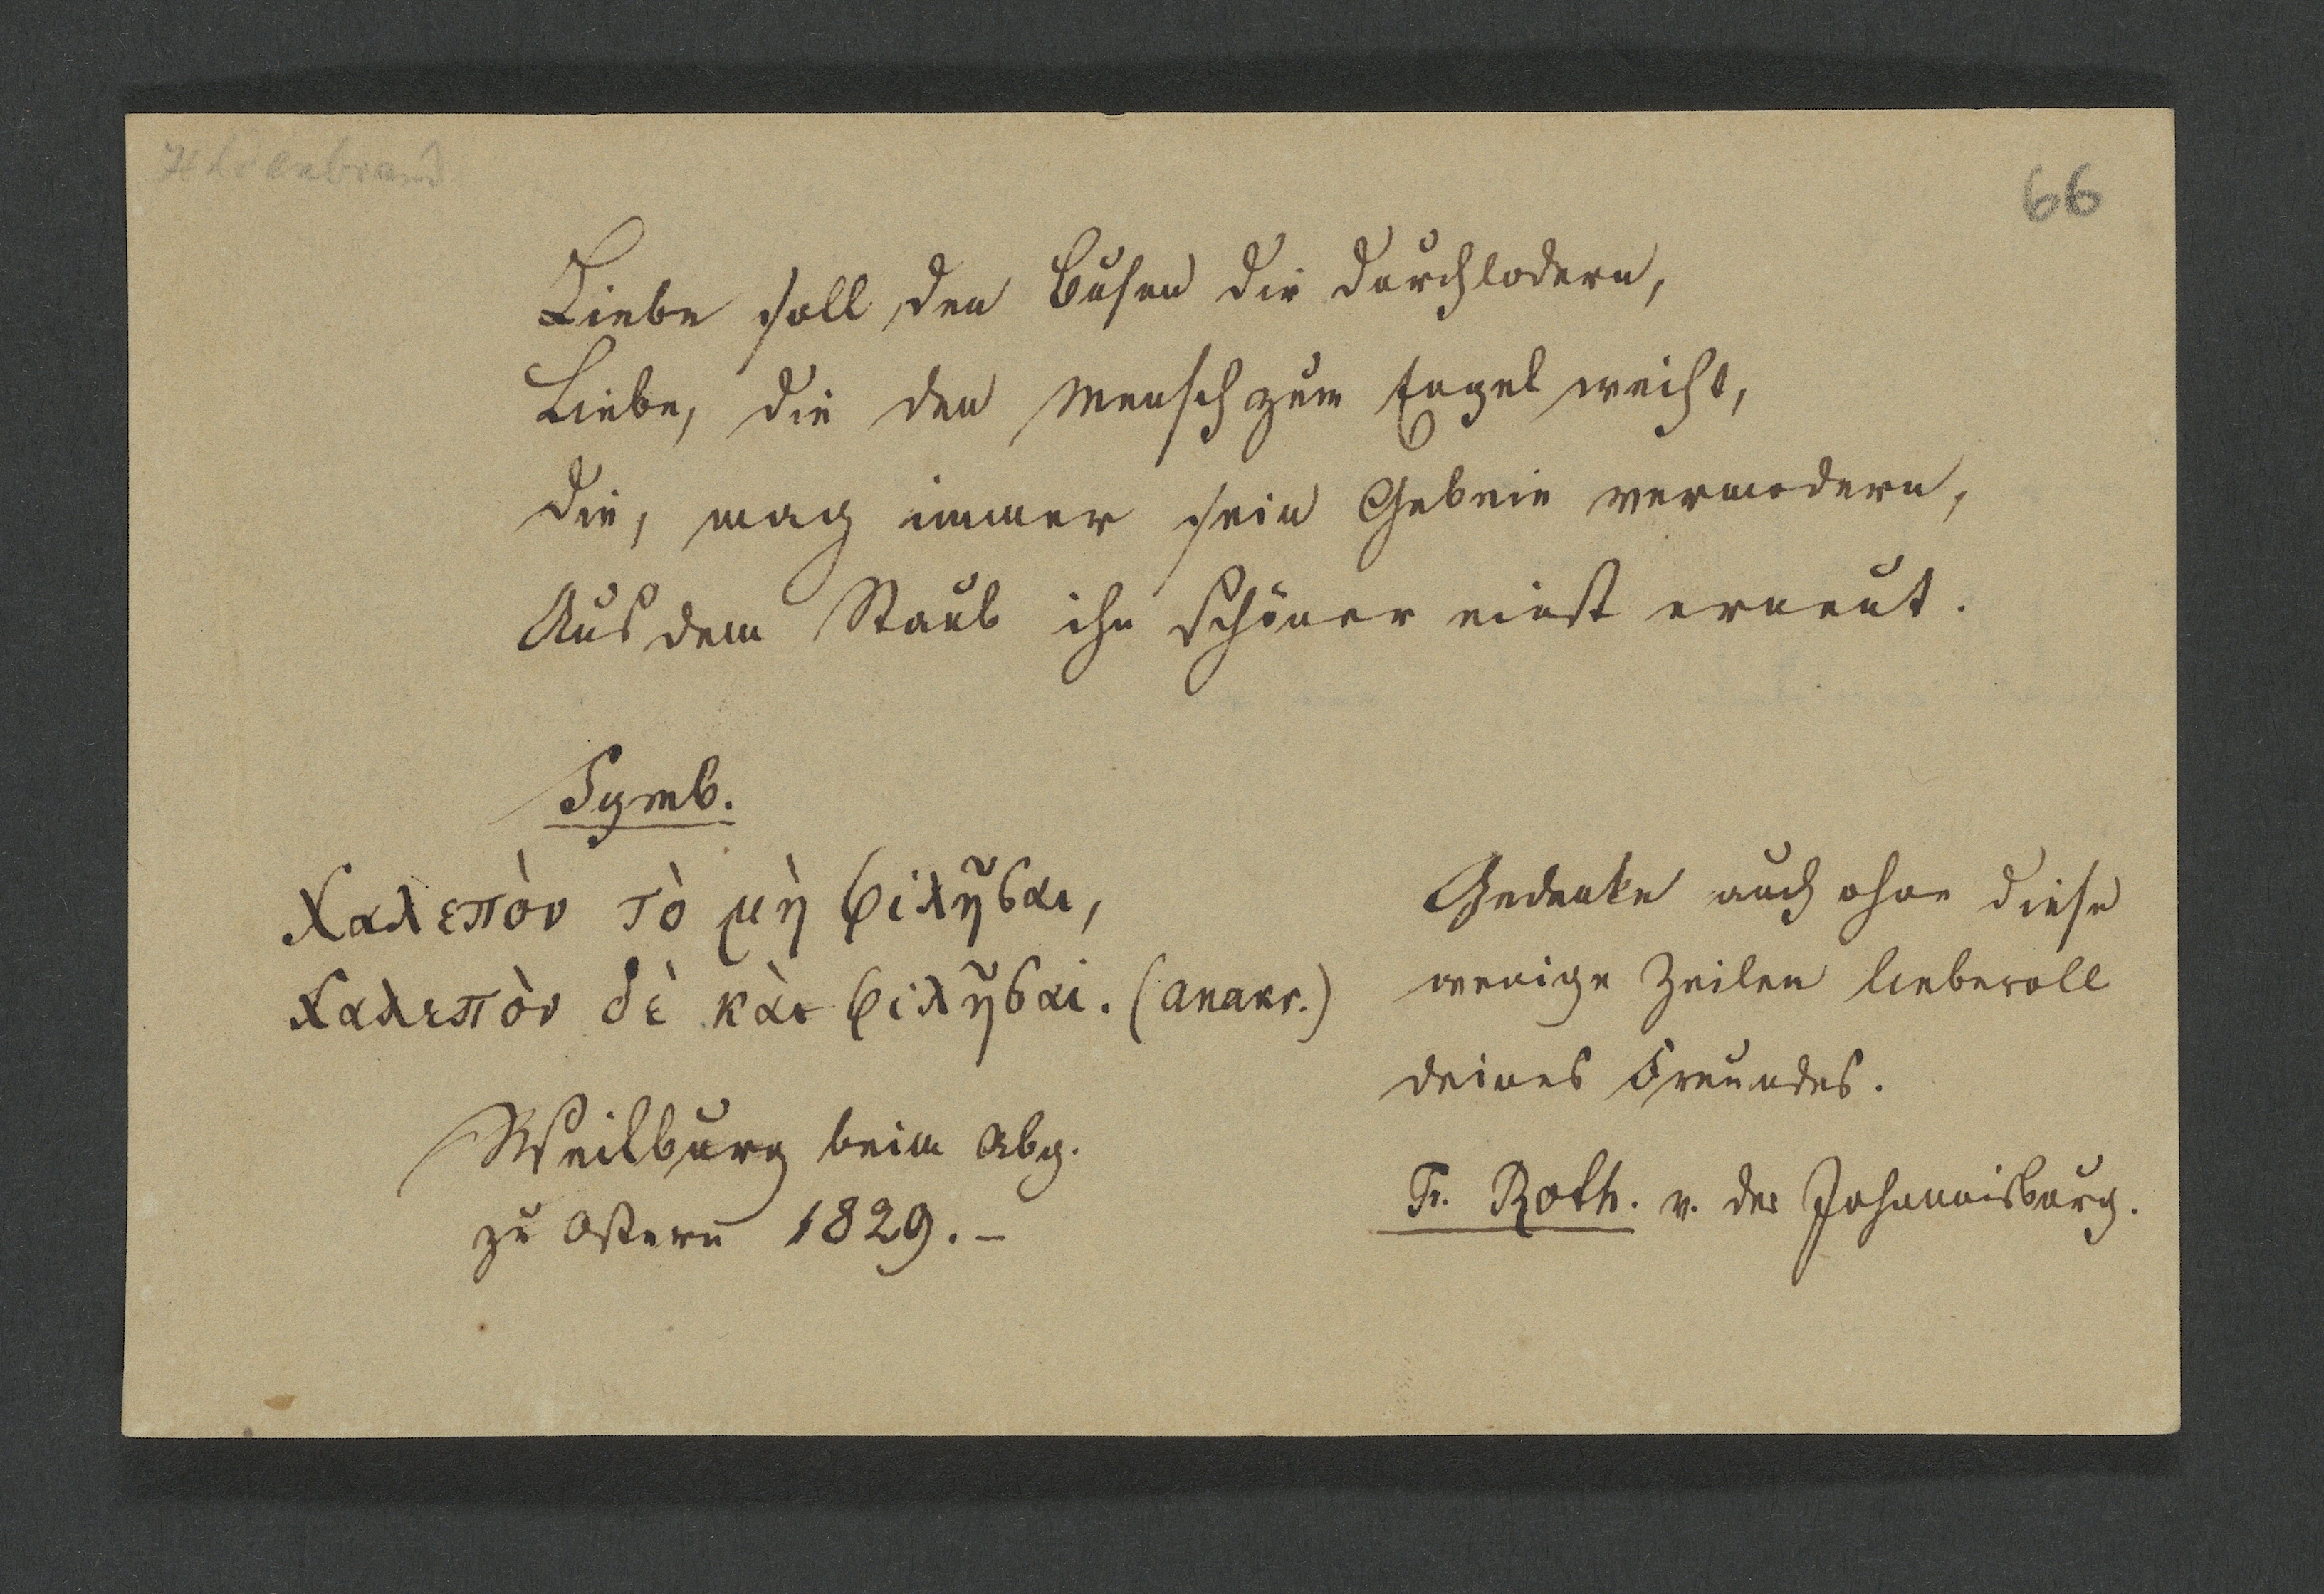 Hildenbrand
66
Liebe soll den Busen dir durchlodern,
Liebe, die den Mensch zum Engel weiht,
Die, mag immer sein Gebein vermodern,
Aus dem Staub ihn schöner einst erneut.
Symb.
Χαλεπὸν τὸ μὴ φιλῆσαι,
Χαλεπὸν δὲ κὰι φιλῆσαι. (Anakr.)
Weilburg beim Abg.
zu Ostern 1829. –
Gedenke auch ohne diese
wenige Zeilen liebevoll
deines Freundes.
Fr. Roth. v. der Johannisburg.